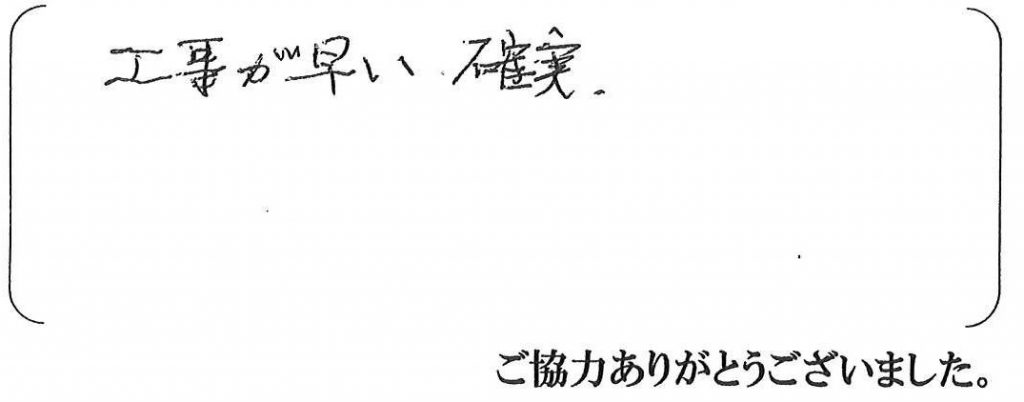 工事が早い 確実.
ご協力ありがとうございました。